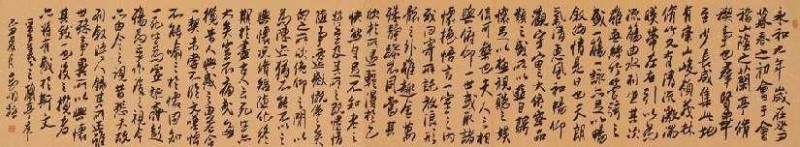 永和九年歲在癸丑
暮春之初會于會
稽山陰之蘭亭脩
禊事也群賢畢
至少長咸集此地
有崇山峻領茂林
脩竹又有清流激湍
暎帶左右引以為
流觴曲水列坐其次
雖無絲竹管弦之
盛一觴一詠亦足以暢
叙幽情是日也天朗
氣清惠風和暢仰
觀宇宙之大俯察品
類之盛所以遊目騁
懷足以極視聽之娛
信可樂也夫人之相
與俯仰一世或取諸
懷抱悟言一室之內
或因寄所託放浪形
骸之外雖趣舍萬
殊靜躁不同當其
欣於所遇輒得於己
快然自足不知老之
將至及其所之既惓情
隨事遷感慨係之矣
向之所欣俛仰之間以
為陳迹猶不能不以之
興懷況脩短隨化終
期於盡古人云死生亦
大矣豈不痛哉每
攬昔人興感之由若合
一契未嘗不臨文嗟悼
不能喻之於懷固知
一死生為虛誕齊彭
殤為妄作後之視今
亦由今之視昔悲夫故
列敘時人錄其所述雖
世殊事異所以興懷
其致一也後之攬者
亦將有感於斯文
王羲之蘭亭序